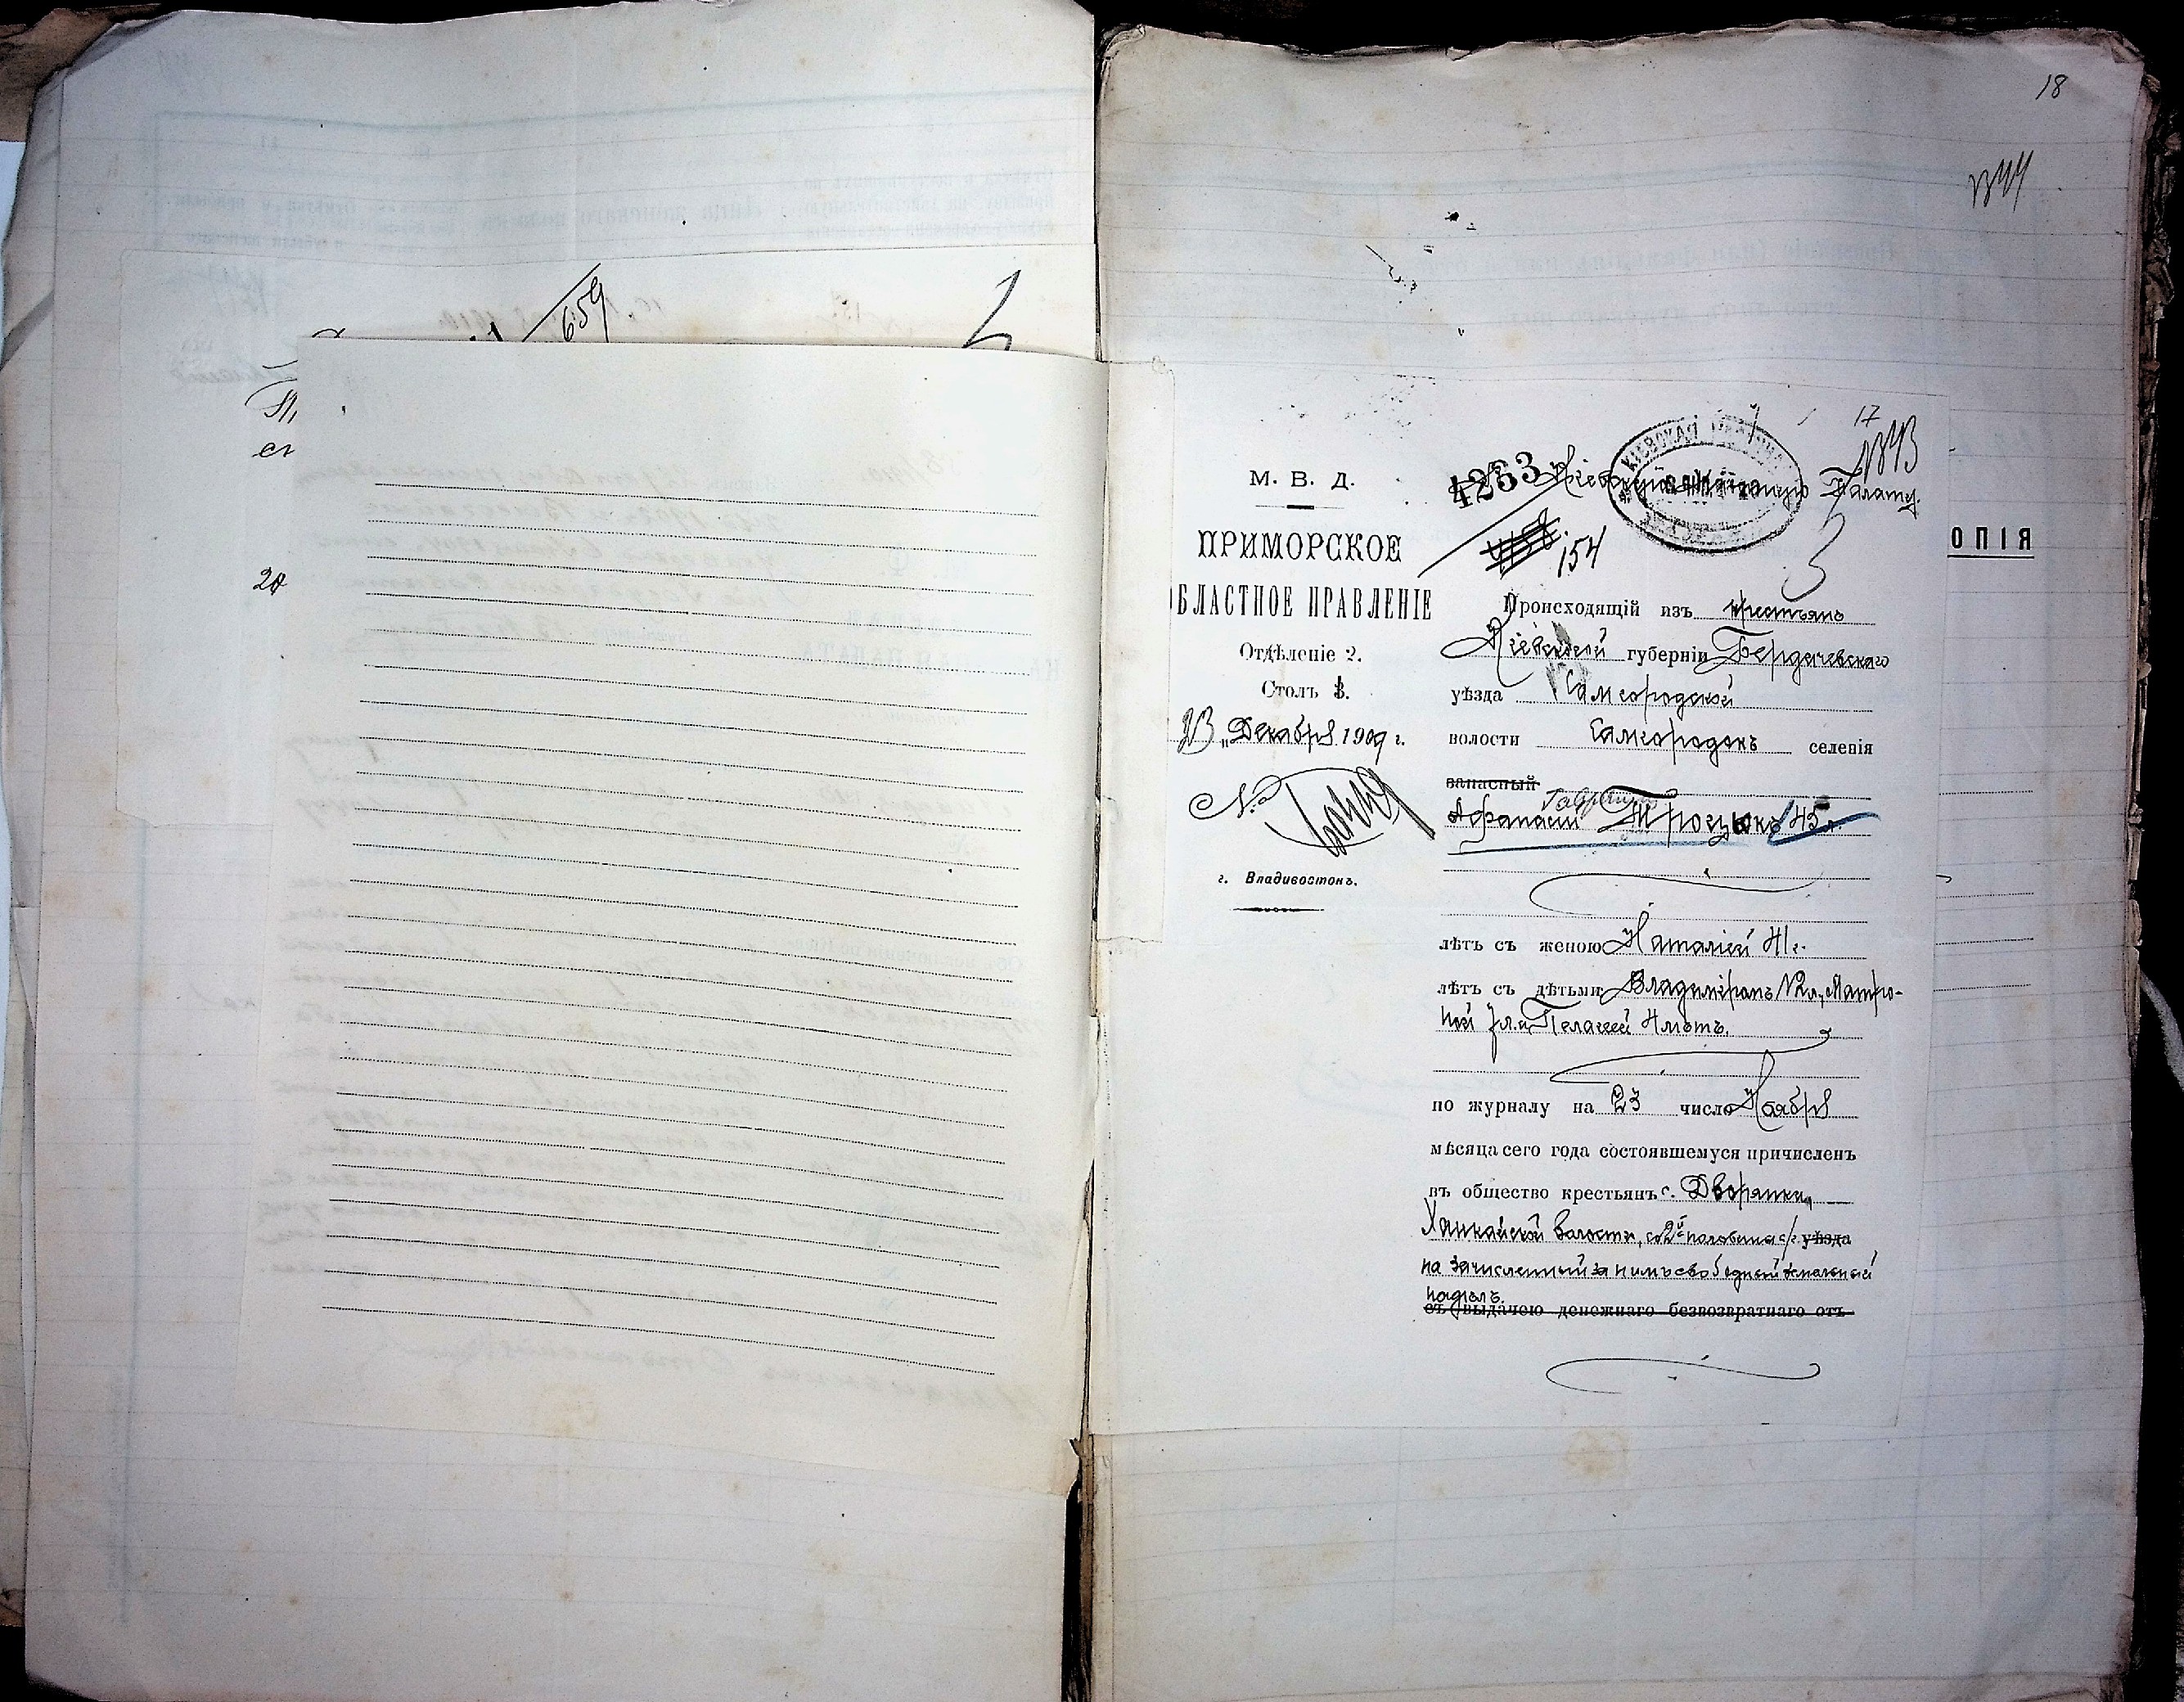 659
20
18
М. В. Д.
ПРИМОРСКОЕ
ОБЛАСТНОЕ ПРАВЛЕНІЕ
Отдѣленіе 2.
Столъ
Декабря 1909 г.
№
г. Владивостокъ.
17
4263
Кіевскую Казенную Палату.
КІЕВСКАЯ
154
3
ОПІЯ
Происходящій изъ крестьянъ
Кіевской губерніи Бердичевскаго
уѣзда Самгородской
волости Самгородокъ селенія
запасный
Афанасій Гаврилов Троцюкъ 45 л.
лѣтъ съ женою Наталіей 41 г.
лѣтъ съ дѣтьми: Владиміромъ 12 л., Матро-
ной 7 л. и Пелагеей 4 лѣтъ.
по журналу на 23 число Ноября
мѣсяца сего года состоявшемуся причисленъ
въ общество крестьянъ с. Дворянки,
Ханкайской волости, со 2й половины с/г. уѣзда
на зачисленный за нимъ свободный земельный
надѣлъ.
съ выдачею денежнаго безвозвратнаго отъ